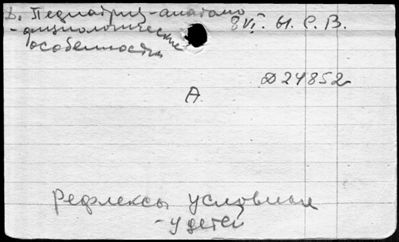 D. Педиатрия-анатомо
-физиологические
особенности
8 VI. Н. С. В.
Ф 24852
А
Рефлексы условные
- у детей